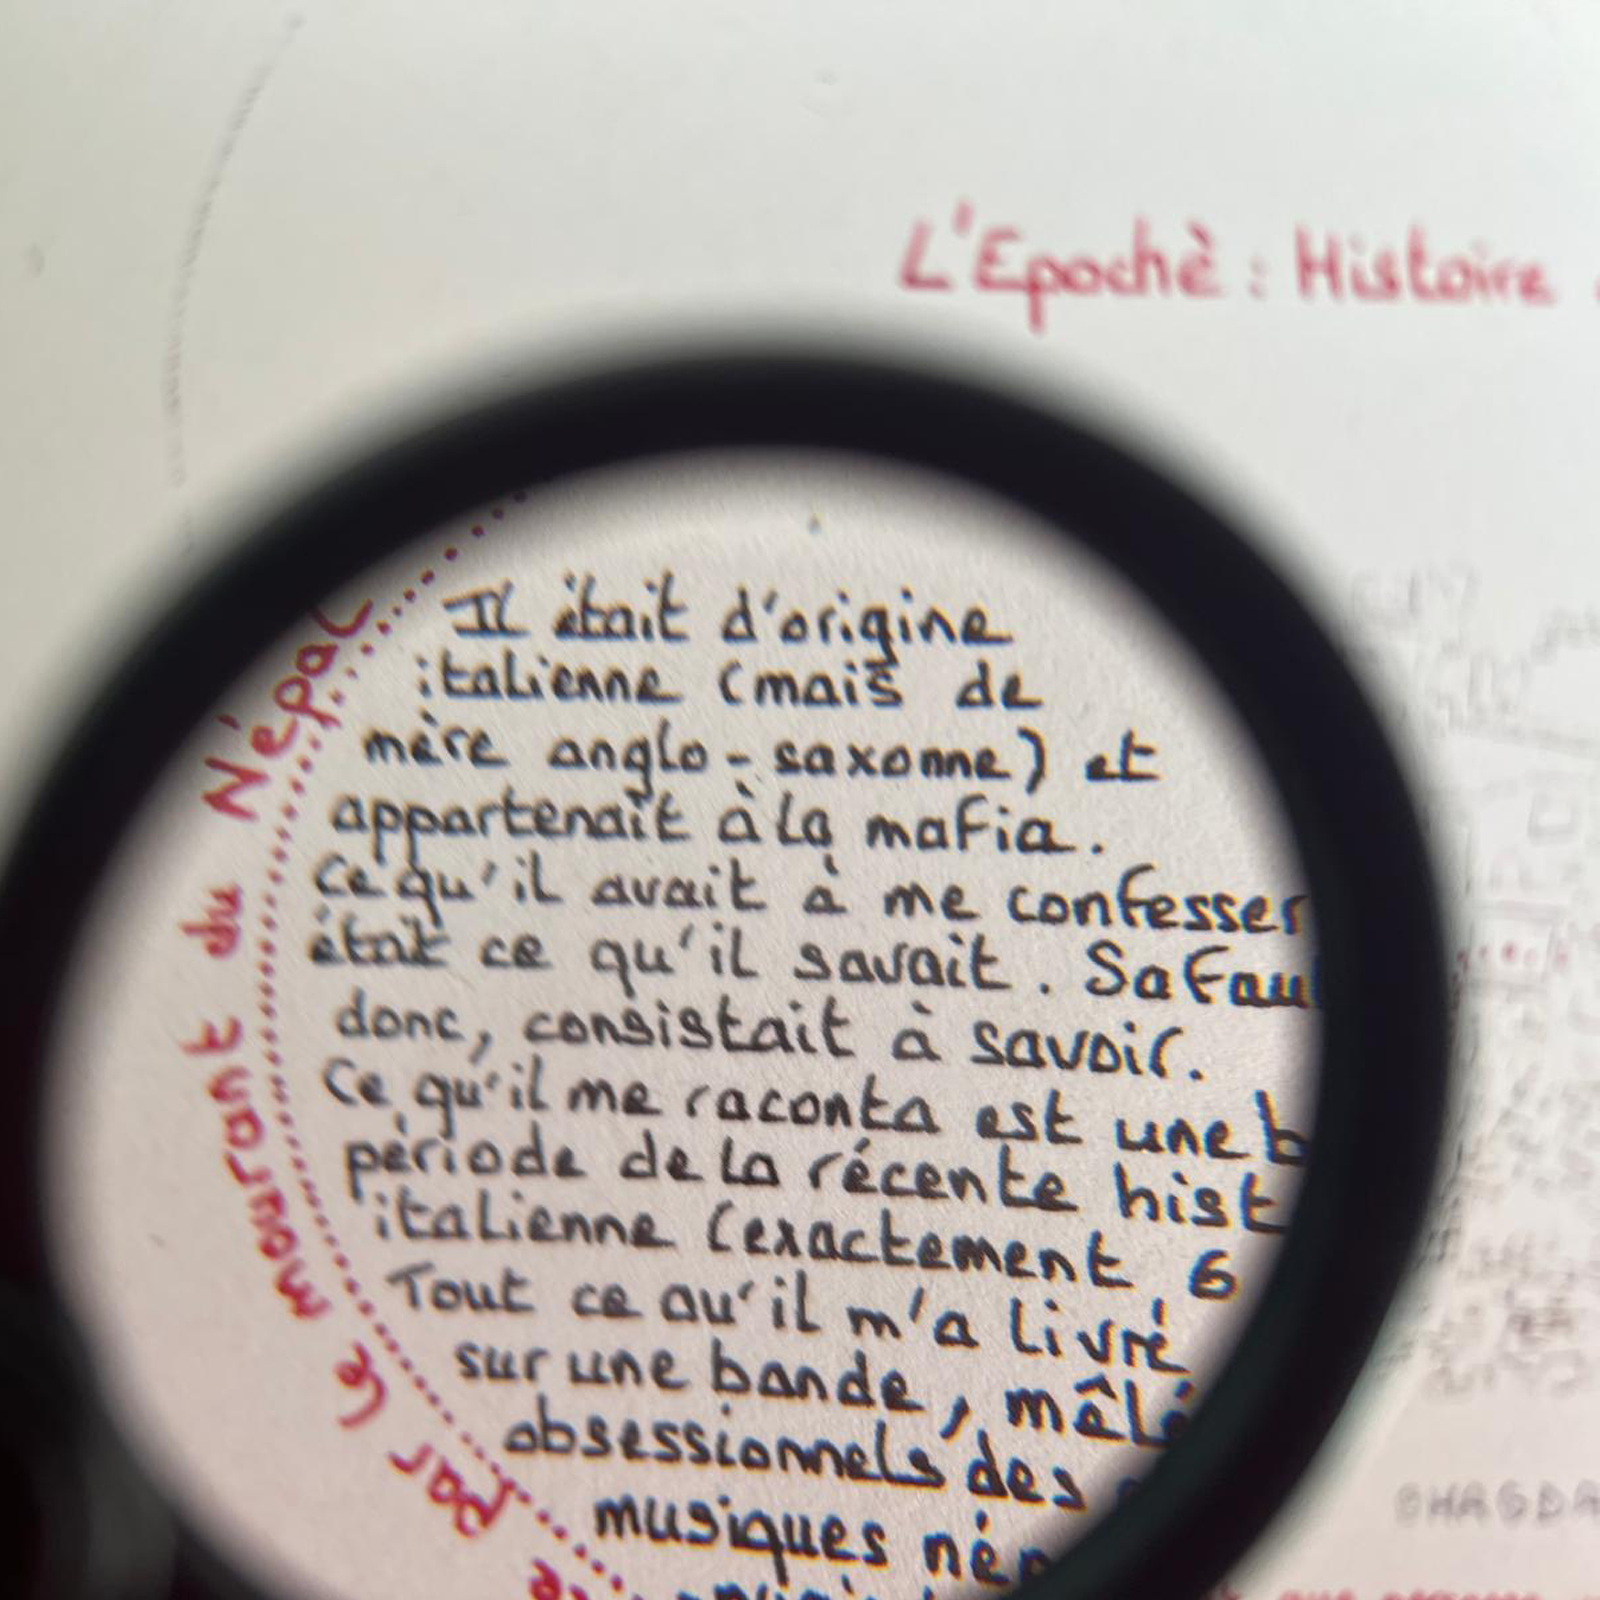 L'Epochè : Histoire
Il était d'origine
italienne (mais de
mère anglo-saxonne) et
appartenait à la mafia.
Ce qu'il avait à me confesser
était ce qu'il savait. Sa fau
donc, consistait à savoir.
Ce qu'il me raconta est une b
période de la récente hist
italienne (exactement 6
Tout ce qu'il m'a livré
sur une bande, mêlé
obsessionnels des
musiques nép
par le mourant du Népal